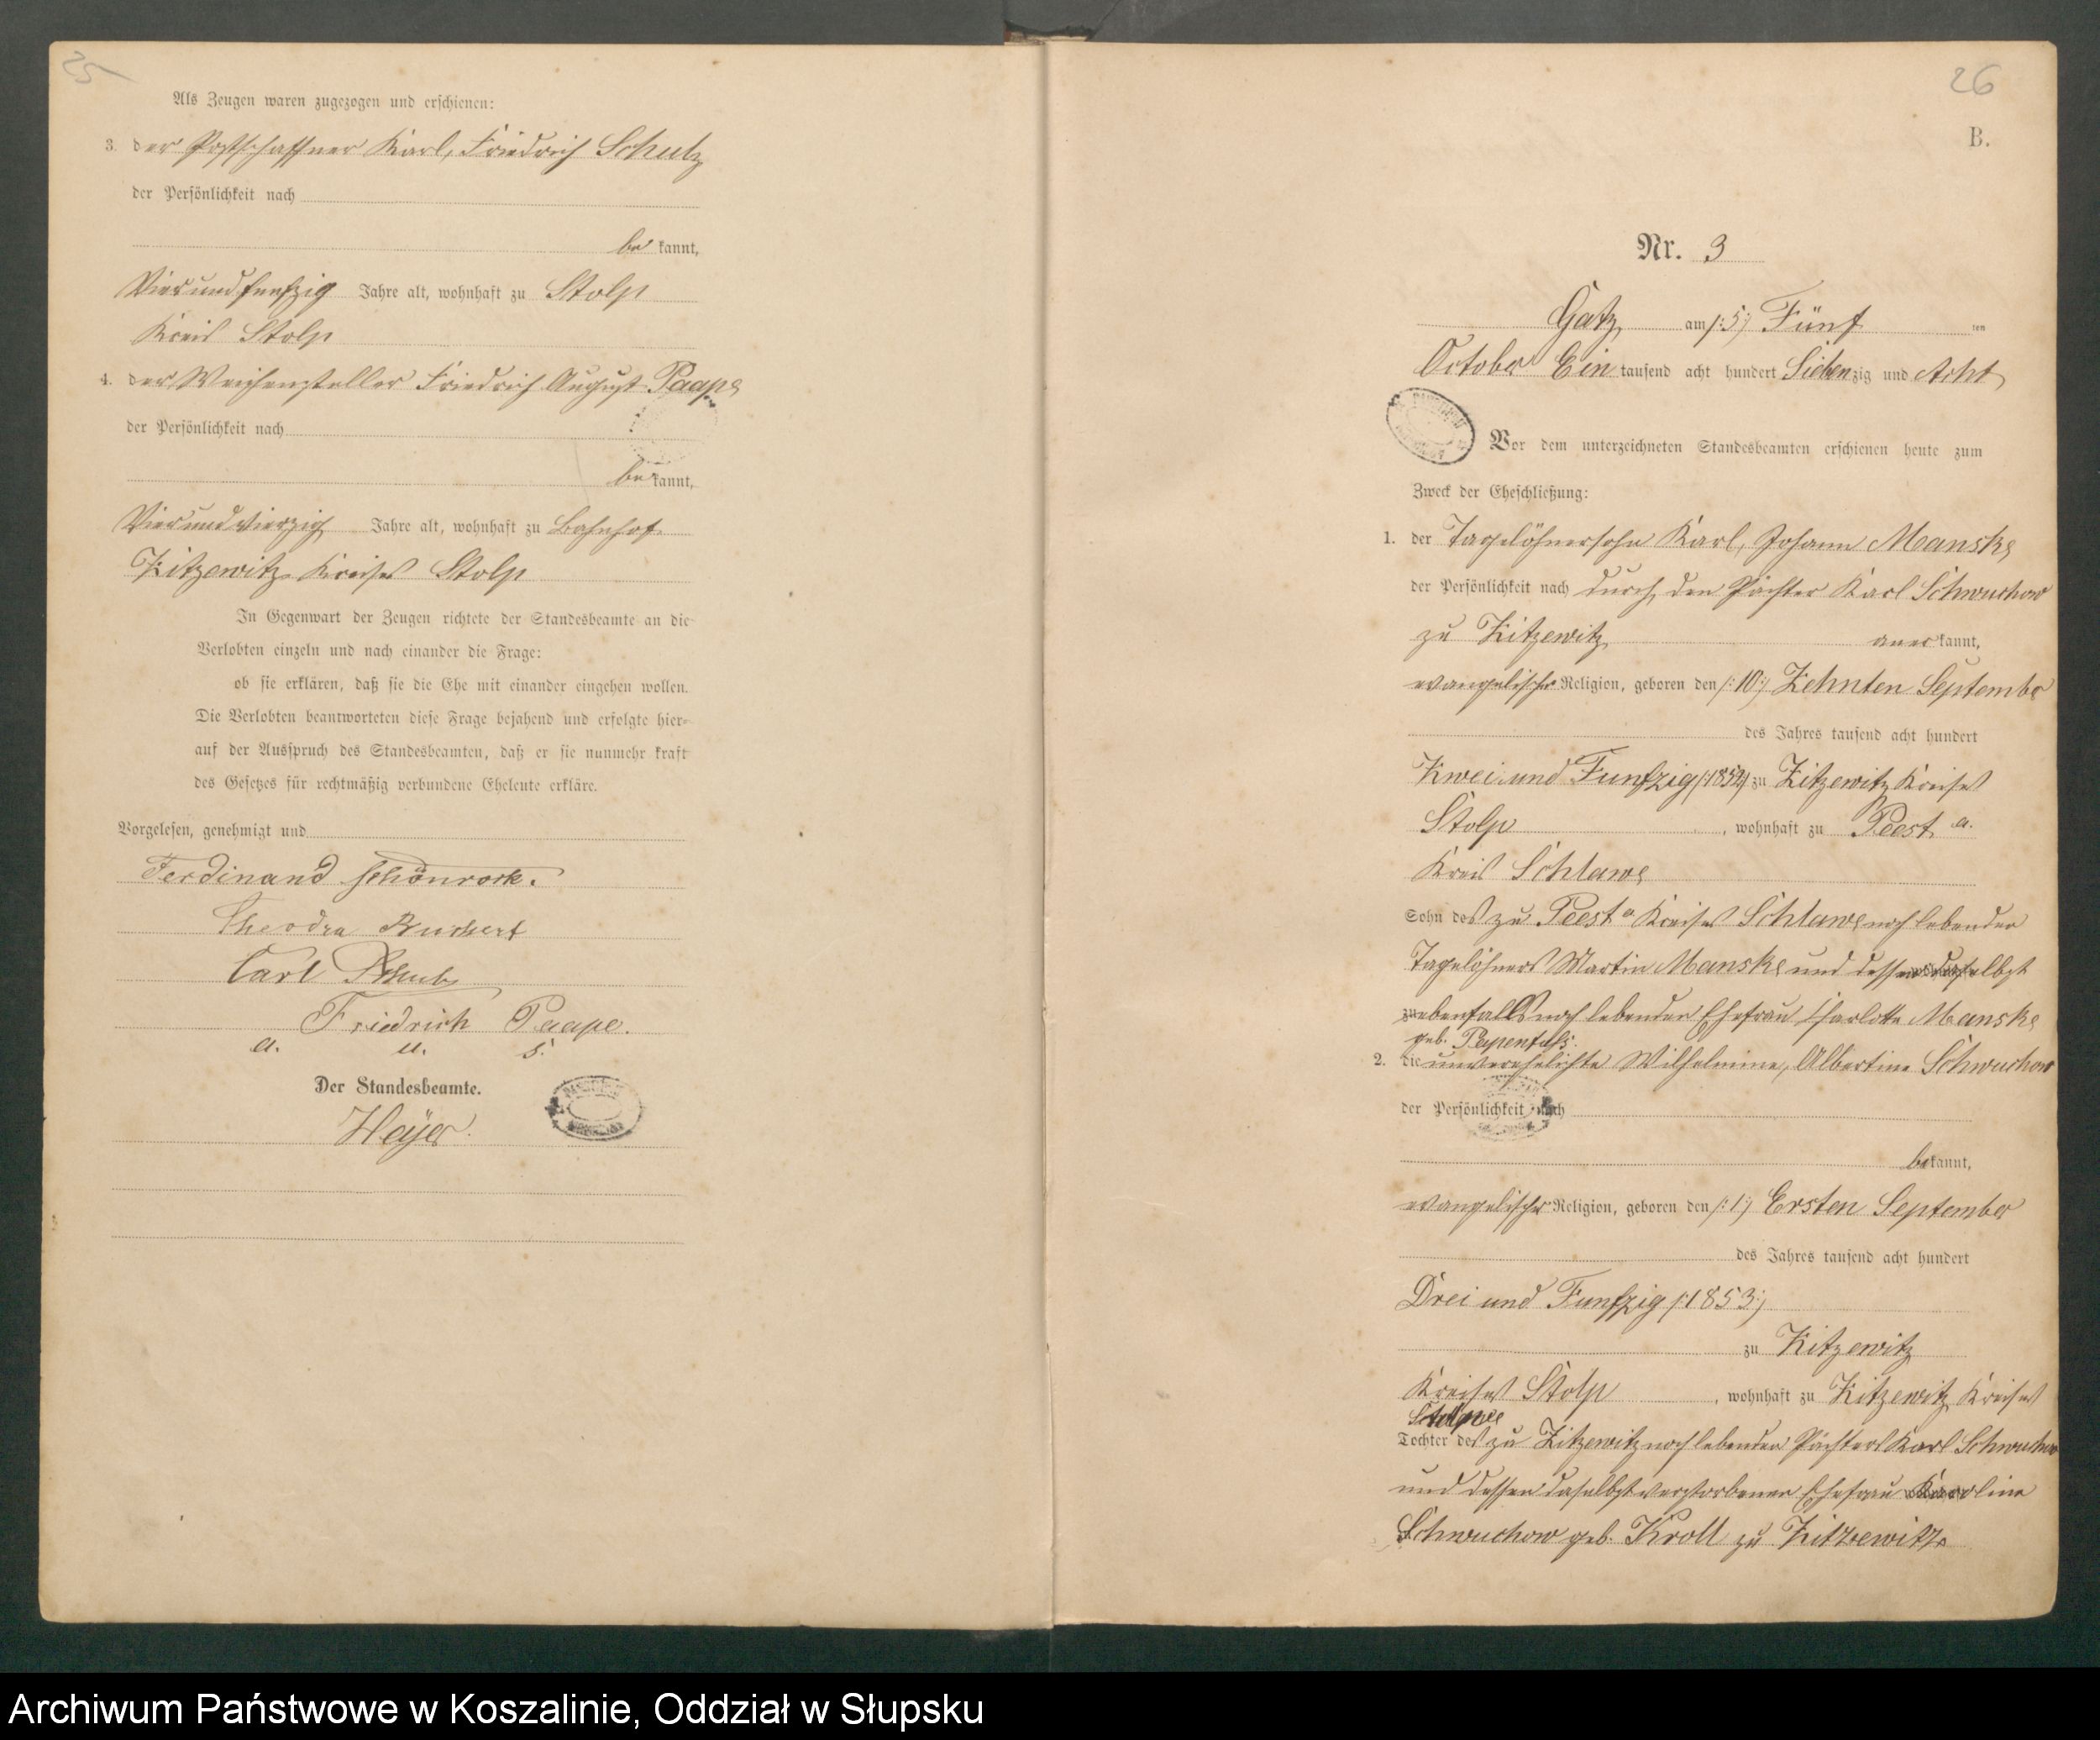 25
Als Zeugen waren zugezogen und erschienen:
3. der Postschaffner Karl, Friedrich Schulz
der Persönlichkeit nach
be kannt,
Vierundfunfzig Jahre alt, wohnhaft zu Stolp
Kreis Stolp
4. der Weichensteller Friedrich August Paape
der Persönlichkeit nach
be kannt,
Vierundvierzig Jahre alt, wohnhaft zu Bahnhof
Zitzewitz Kreises Stolp
In Gegenwart der Zeugen richtete der Standesbeamte an die
Verlobten einzeln und nach einander die Frage:
ob sie erklären, daß sie die Ehe mit einander eingehen wollen.
Die Verlobten beantworteten diese Frage bejahend und erfolgte hier-
auf der Ausspruch des Standesbeamten, daß er sie nunmehr kraft
des Gesetzes für rechtmäßig verbundene Eheleute erkläre.
Vorgelesen, genehmigt und
Ferdinand Schönrock.
Carl
Friedrich Paape.
a. u. s.
Der Standesbeamte.
Heyer.
26
B.
Nr. 3
Gatz am /:5:/ Fünf ten
October Ein tausend acht hundert Siebenzig und Acht
Vor dem unterzeichneten Standesbeamten erschienen heute zum
Zweck der Eheschließung:
1. der Tagelöhnersohn Karl, Johann Manske
der Persönlichkeit nach durch den Pächter Karl Schwuchow
zu Zitzewitz anerkannt,
evangelischer Religion, geboren den /:10:/ Zehnten September
des Jahres tausend acht hundert
Zwei und Funfzig /:1852:/ zu Zitzewitz Kreises
Stolp, wohnhaft zu Peest a.
Kreis Schlawe
Sohn des zu Peest a Kreises Schlawe noch lebenden
Tagelöhners Martin Manske und dessen daselbst
zu ebenfalls noch lebenden Ehefrau Charlotte Manske
geb. Papenfuß.
2. die unverehelichte Wilhelmine, Albertine Schwuchow
der Persönlichkeit nach
bekannt,
evangelischer Religion, geboren den /:1:/ Ersten September
des Jahres tausend acht hundert
Drei und Funfzig /:1853:/
zu Zitzewitz
Kreises Stolp, wohnhaft zu Zitzewitz Kreises
Stolp
Tochter des zu Zitzewitz noch lebenden Pächters Karl Schwuchow
und dessen daselbst verstorbenen Ehefrau Karoline
Schwuchow geb. Kroll zu Zitzewitz
Archiwum Państwowe w Koszalinie, Oddział w Słupsku